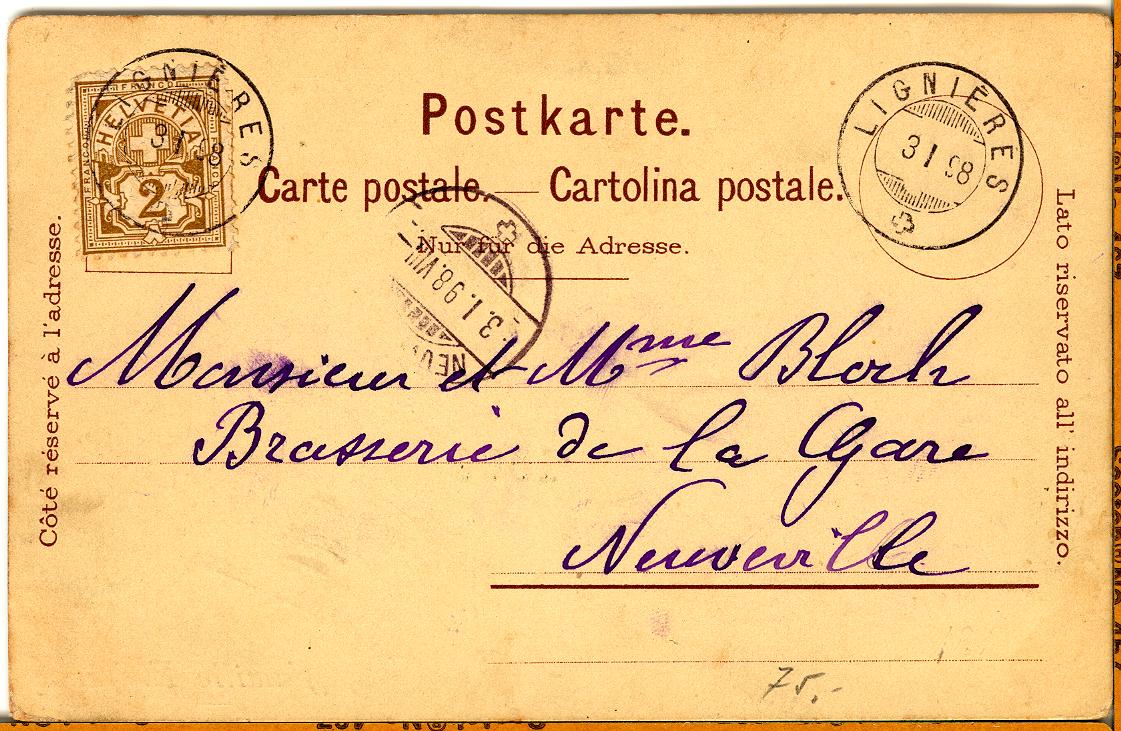 FRANCO
HELVETIA
FRANCO
2
LIGNIÈRES
3 I 98
Postkarte.
Carte postale. — Cartolina postale.
Nur für die Adresse.
Côté réservé à l'adresse.
Lato riservato all' indirizzo.
3.I.98.VIII
Monsieur et Mme Bloch
Brasserie de la Gare
Neuveville
75.-